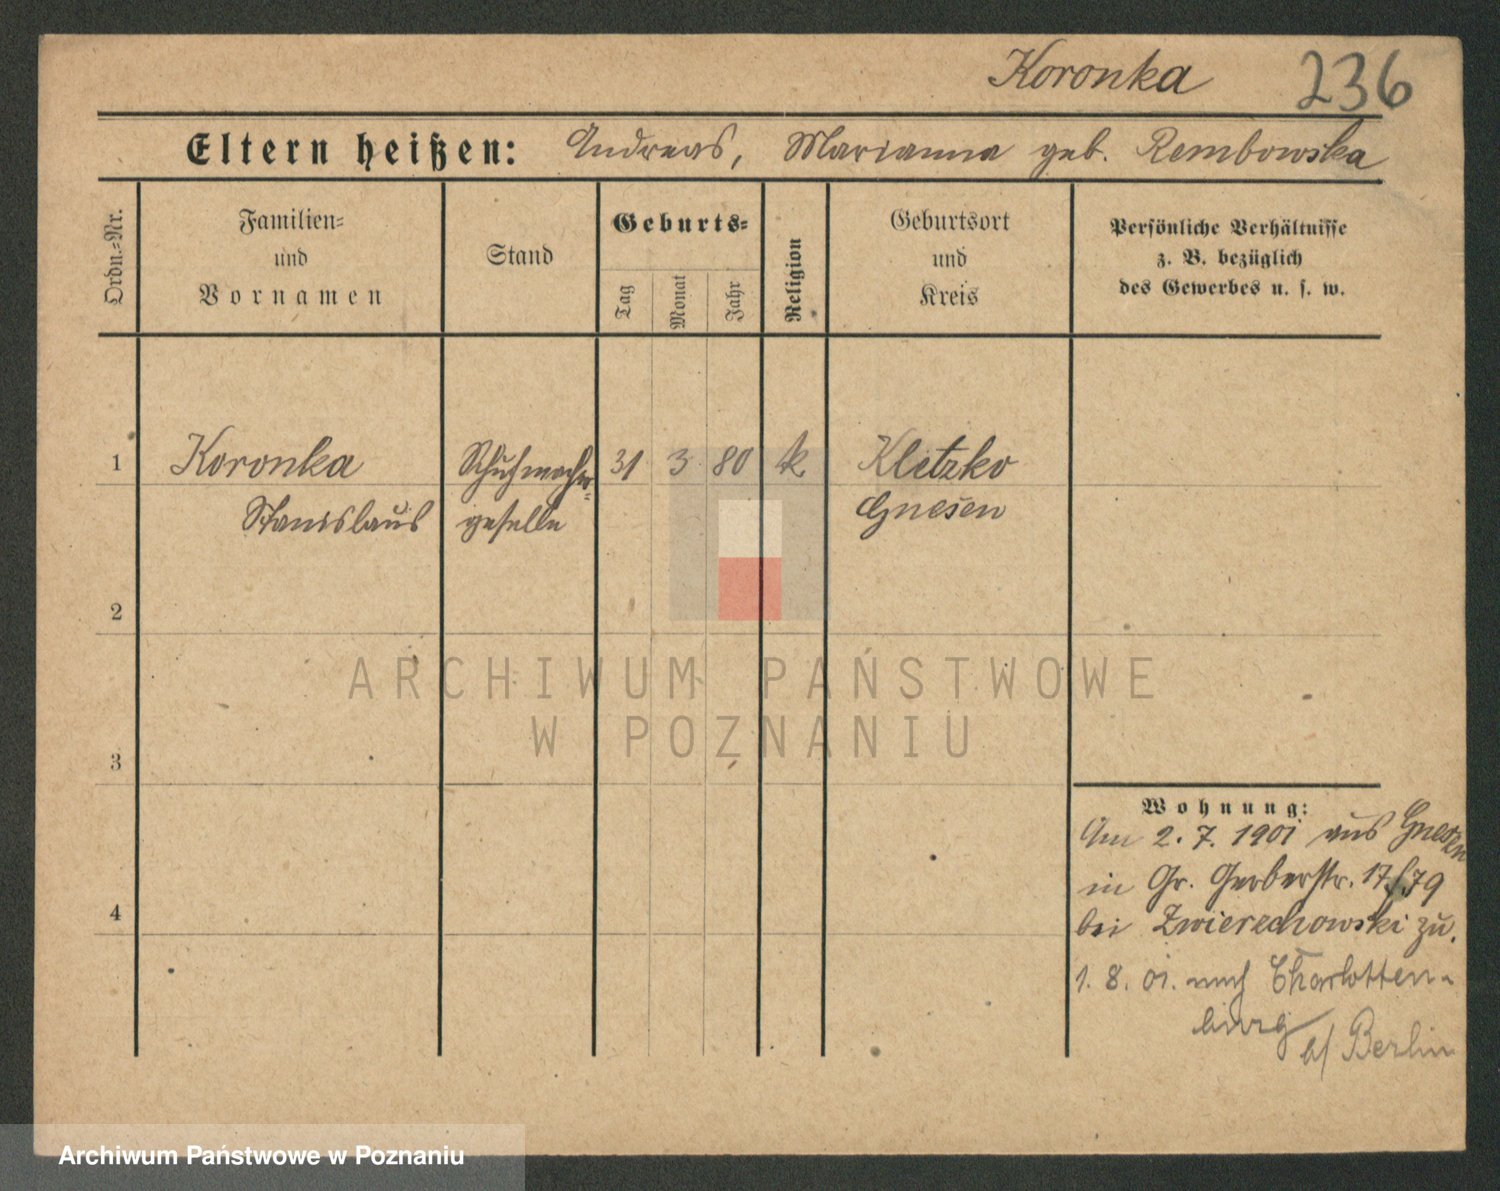 Koronka 236
Eltern heißen: Andreas, Marianna geb. Rembowska
Ordn.=Nr.
Familien=
und
Vornamen
Stand
Geburts=
Tag
Monat
Jahr
Religion
Geburtsort
und
Kreis
Persönliche Verhältnisse
z. B. bezüglich
des Gewerbes u. s. w.
1 Koronka Schuhmacher= 31 3 80 k Kletzko
Stanislaus geselle Gnesen
2
ARCHIWUM PAŃSTWOWE
W POZNANIU
3
Wohnung:
Am 2. 7. 1901 aus Gnesen
in Gr. Gerberstr. 17/79
bei Zwierzchowski zu.
4
1. 8. 01. nach Charlotten-
burg
b/ Berlin
Archiwum Państwowe w Poznaniu